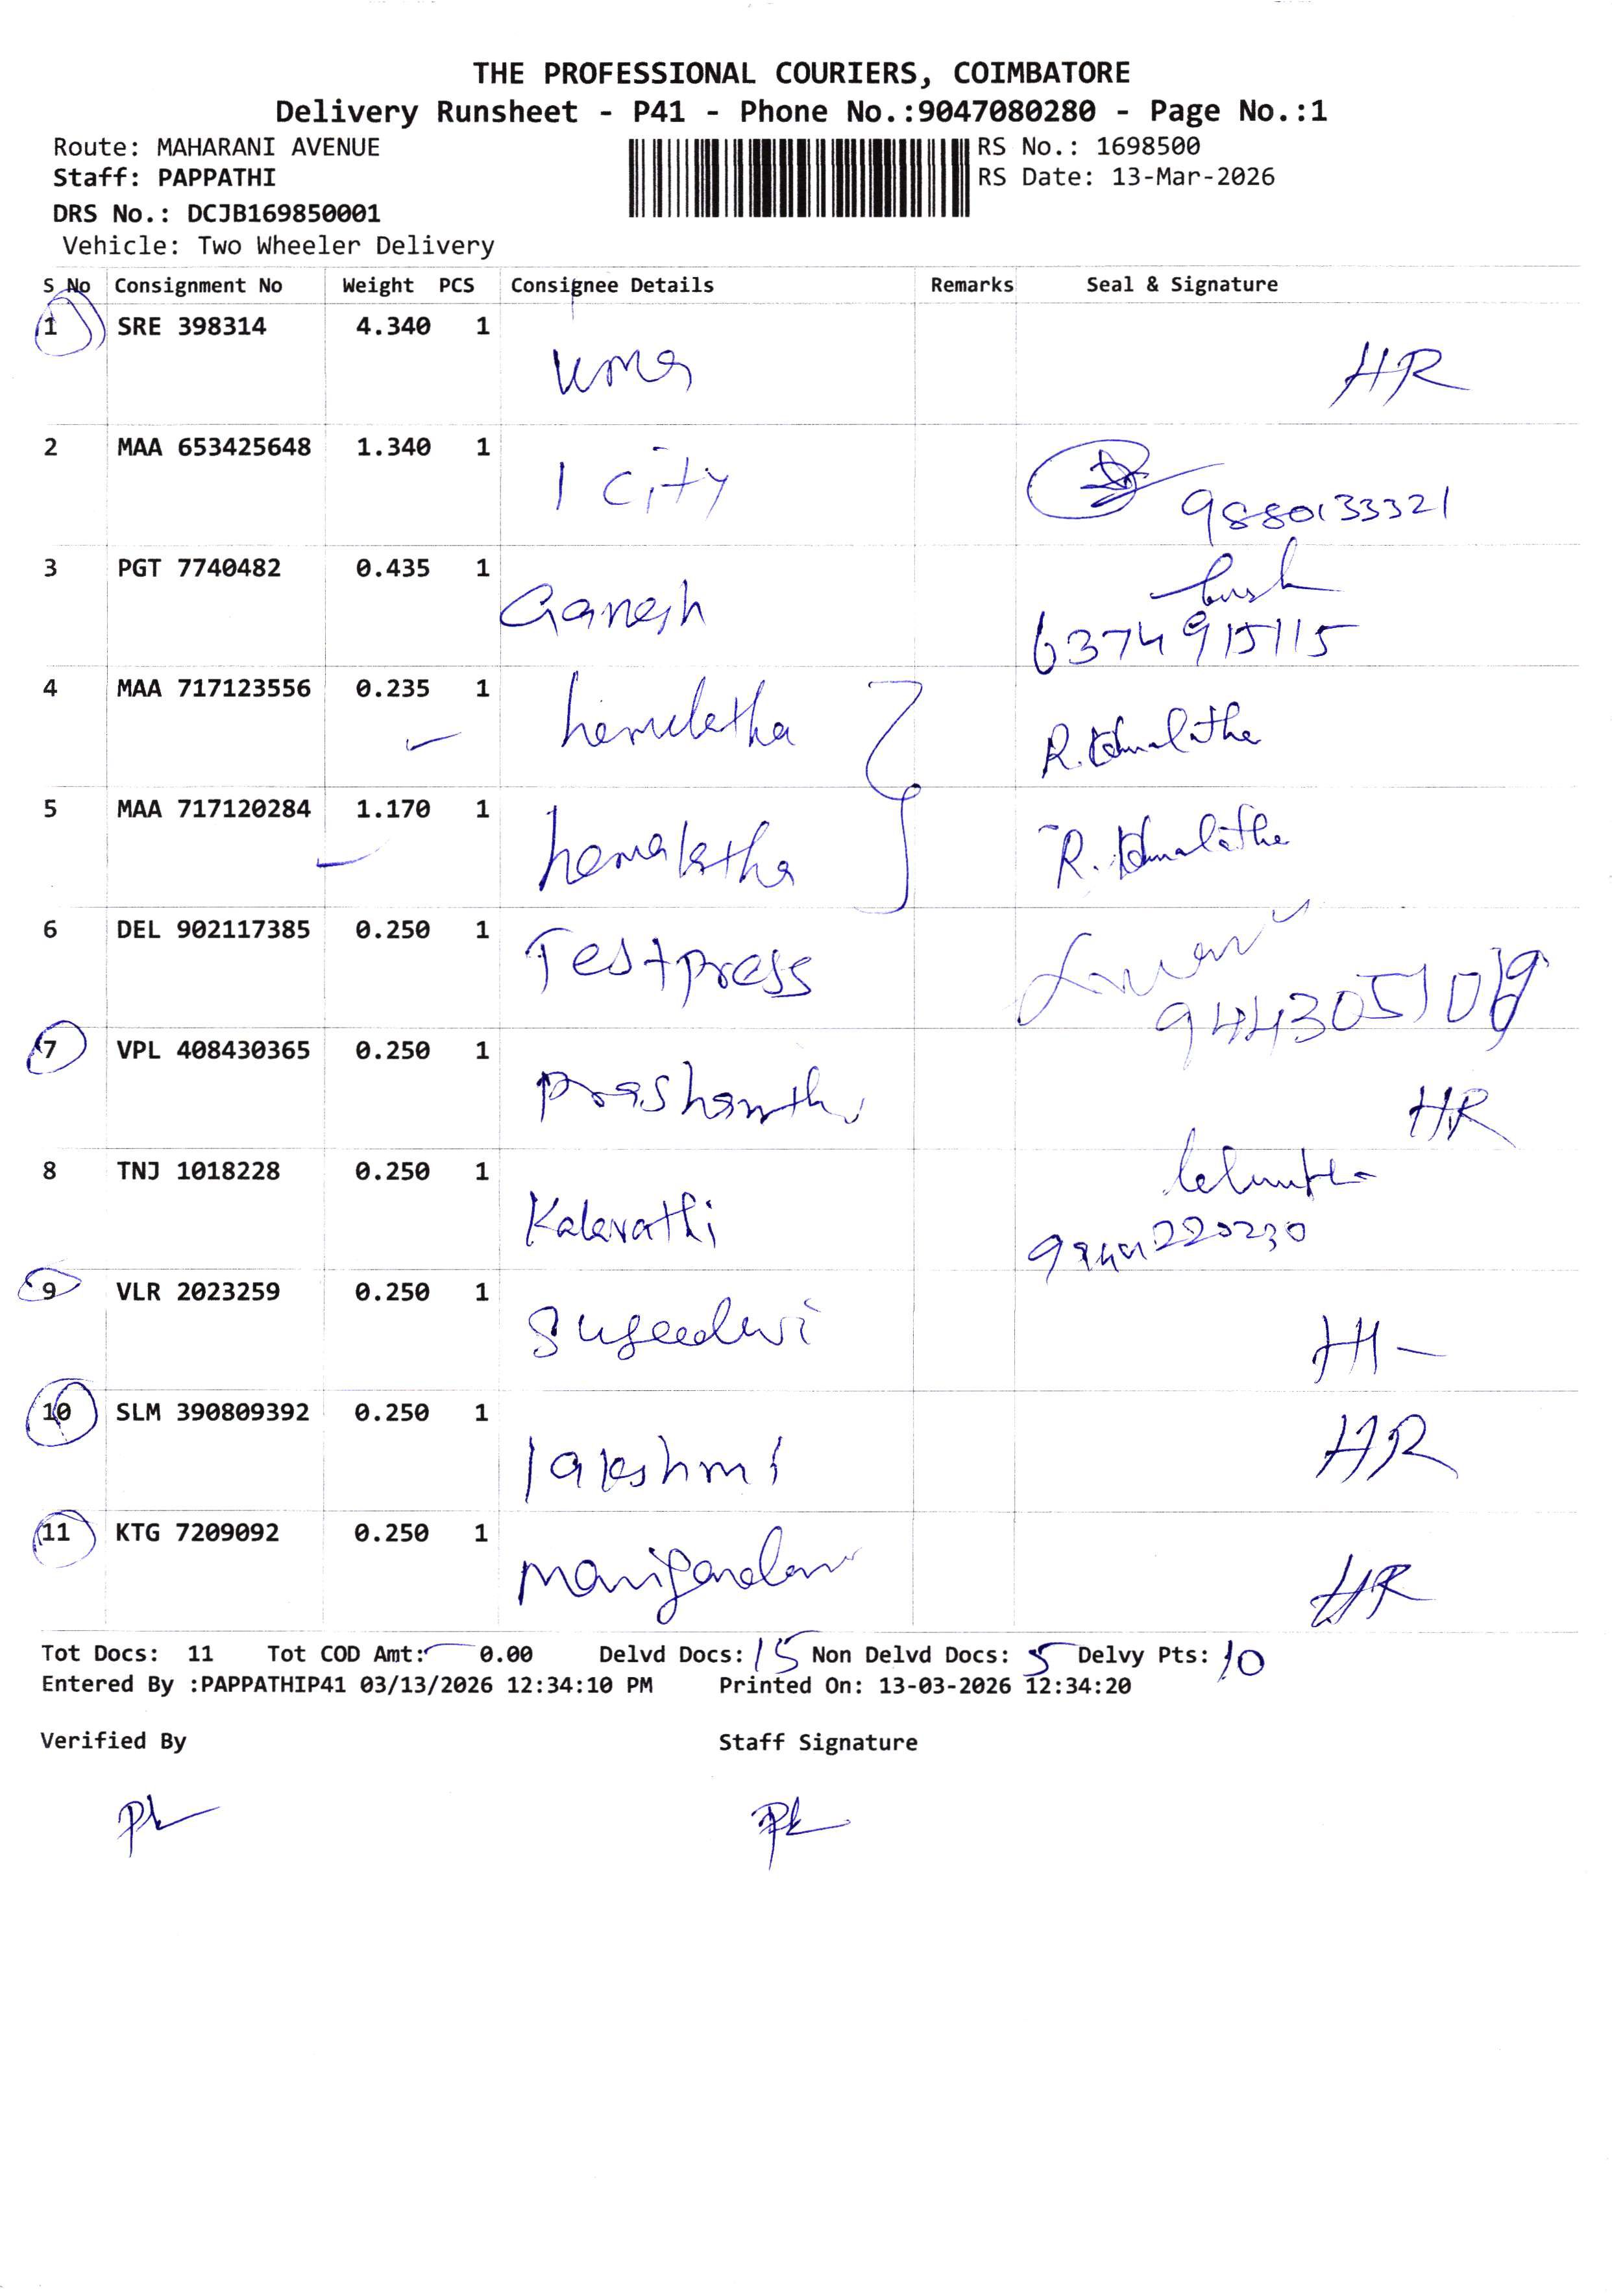 THE PROFESSIONAL COURIERS, COIMBATORE
Delivery Runsheet - P41 - Phone No.:9047080280 - Page No.:1
Route: MAHARANI AVENUE
RS No.: 1698500
Staff: PAPPATHI
RS Date: 13-Mar-2026
DRS No.: DCJB169850001
Vehicle: Two Wheeler Delivery
S No Consignment No Weight PCS Consignee Details Remarks Seal & Signature
1 SRE 398314 4.340 1
uma HR
2 MAA 653425648 1.340 1
1 city 9880133321
3 PGT 7740482 0.435 1
Ganesh
6374915115
4 MAA 717123556 0.235 1
hemelatha
5 MAA 717120284 1.170 1
hemalatha
6 DEL 902117385 0.250 1
Testpress
7 VPL 408430365 0.250 1
prashanth HR
8 TNJ 1018228 0.250 1
Kalavathi
9 VLR 2023259 0.250 1
10 SLM 390809392 0.250 1
lakshmi HR
11 KTG 7209092 0.250 1
HR
Tot Docs: 11 Tot COD Amt: 0.00 Delvd Docs: 15 Non Delvd Docs: 5 Delvy Pts: 10
Entered By :PAPPATHIP41 03/13/2026 12:34:10 PM Printed On: 13-03-2026 12:34:20
Verified By Staff Signature